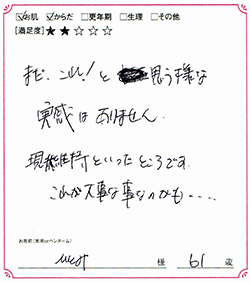 ☑お肌 ☑からだ □更年期 □生理 □その他
[満足度]★★☆☆☆
まだ、これ!と 思う様な
実感はありません。
現状維持といったところです。
これが大事な事なのかも・・・・
お名前(本名orペンネーム)
様 61 歳